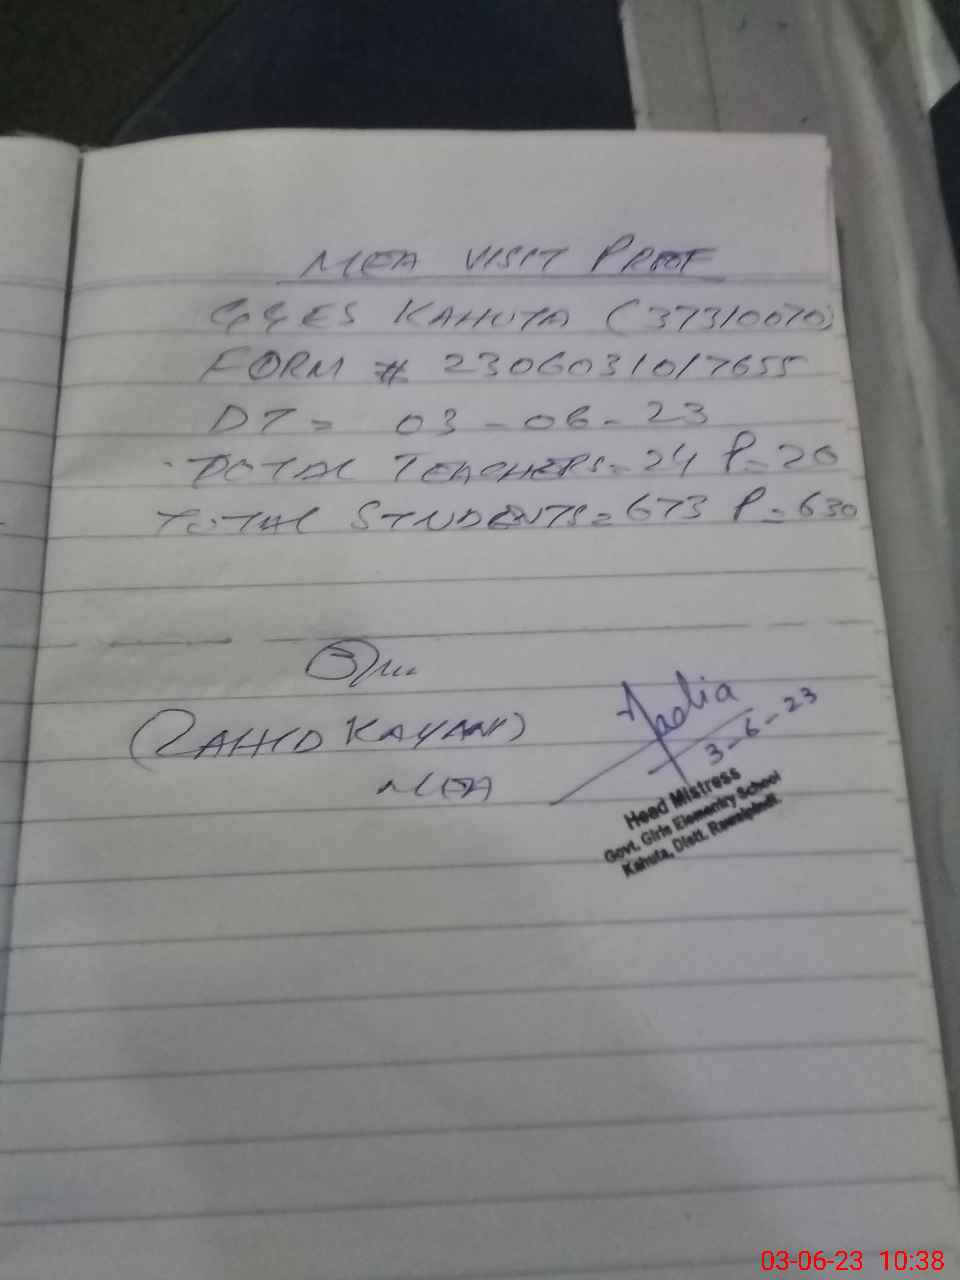 MEA VISIT PROOF
GGES KAHUTA (37310070)
FORM # 2306031017655
DT = 03-06-23
TOTAL TEACHERS = 24 P = 20
TOTAL STUDENTS = 673 P = 630
(ZAHID KAYANI)
MEA
Nadia
3-6-23
Head Mistress
Govt. Girls Elementry School
Kahuta, Distt. Rawalpindi.
03-06-23 10:38